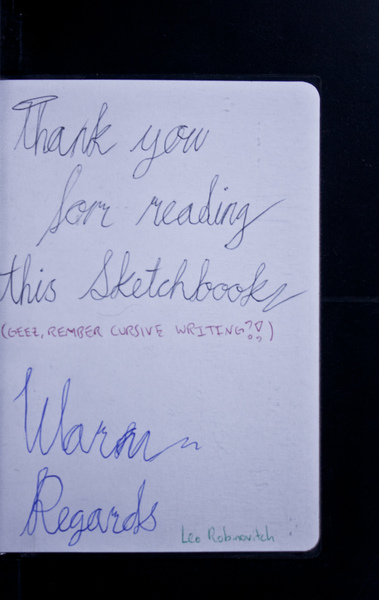 Thank you
for reading
this Sketchbook
(GEEZ, REMBER CURSIVE WRITING?!)
Warm
Regards
Leo Robinovitch